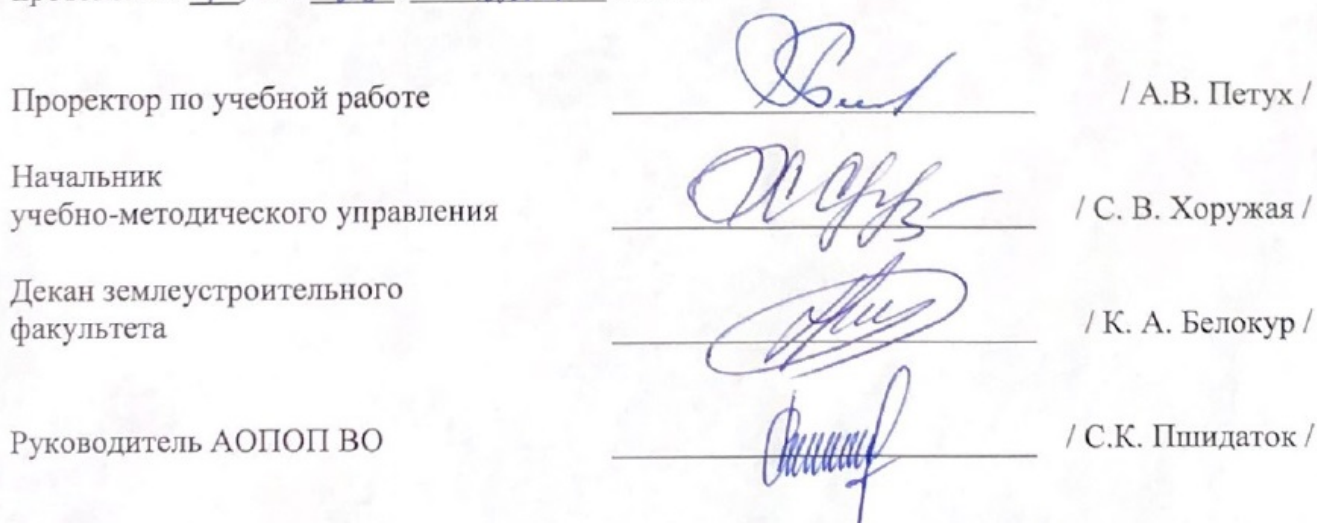 Проректор по учебной работе / А.В. Петух /
Начальник
учебно-методического управления / С. В. Хоружая /
Декан землеустроительного
факультета / К. А. Белокур /
Руководитель АОПОП ВО / С.К. Пшидаток /